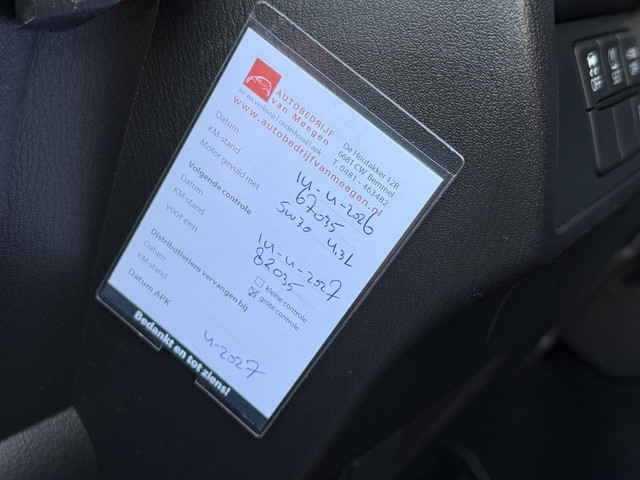 AUTOBEDRIJF
van Meegen
in- en verkoop | onderhoud | apk
De Houtakker 12B
6681 CW Bemmel
T. 0481 - 463482
www.autobedrijfvanmeegen.nl
Datum 14-4-2026
KM-stand 67035
Motor gevuld met 5w30 4.3L
Volgende controle
Datum 14-4-2027
KM-stand 82035
voor een kleine controle
grote controle
Distributieriem vervangen bij
Datum
KM-stand
Datum APK 4-2027
Bedankt en tot ziens!
OFF